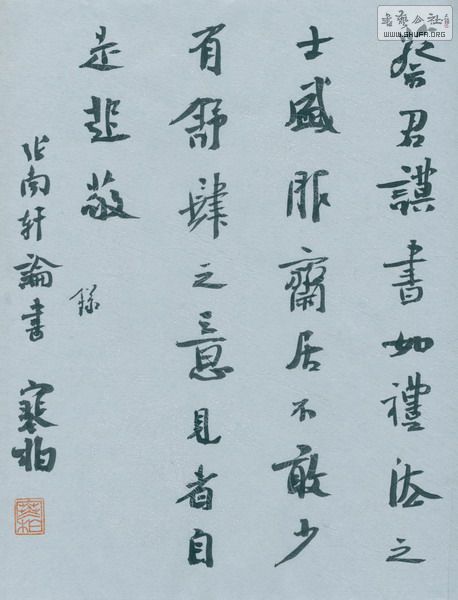 蔡君謨書如禮法之
士盛服齋居不敢少
有舒肆之意見者自
是起敬
録
张南轩論書 寒柏
寒柏
书艺公社
WWW.SHUFA.ORG